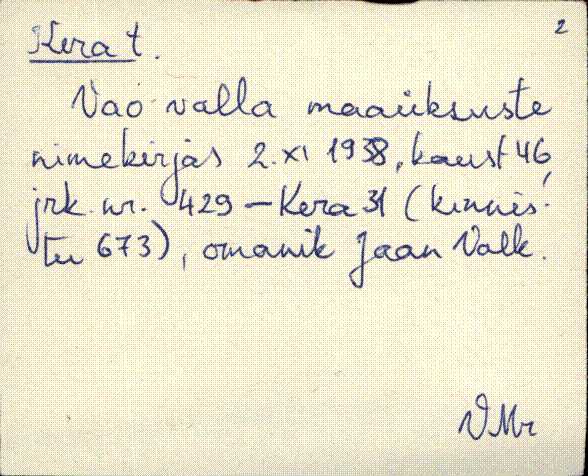 2
Kera t.
Vao valla maaüksuste
nimekirjas 2. XI 1938, kaust 46,
jrk. nr. 429 – Kera 31 (kinnis-
tu 673), omanik Jaan Valk.
VMr